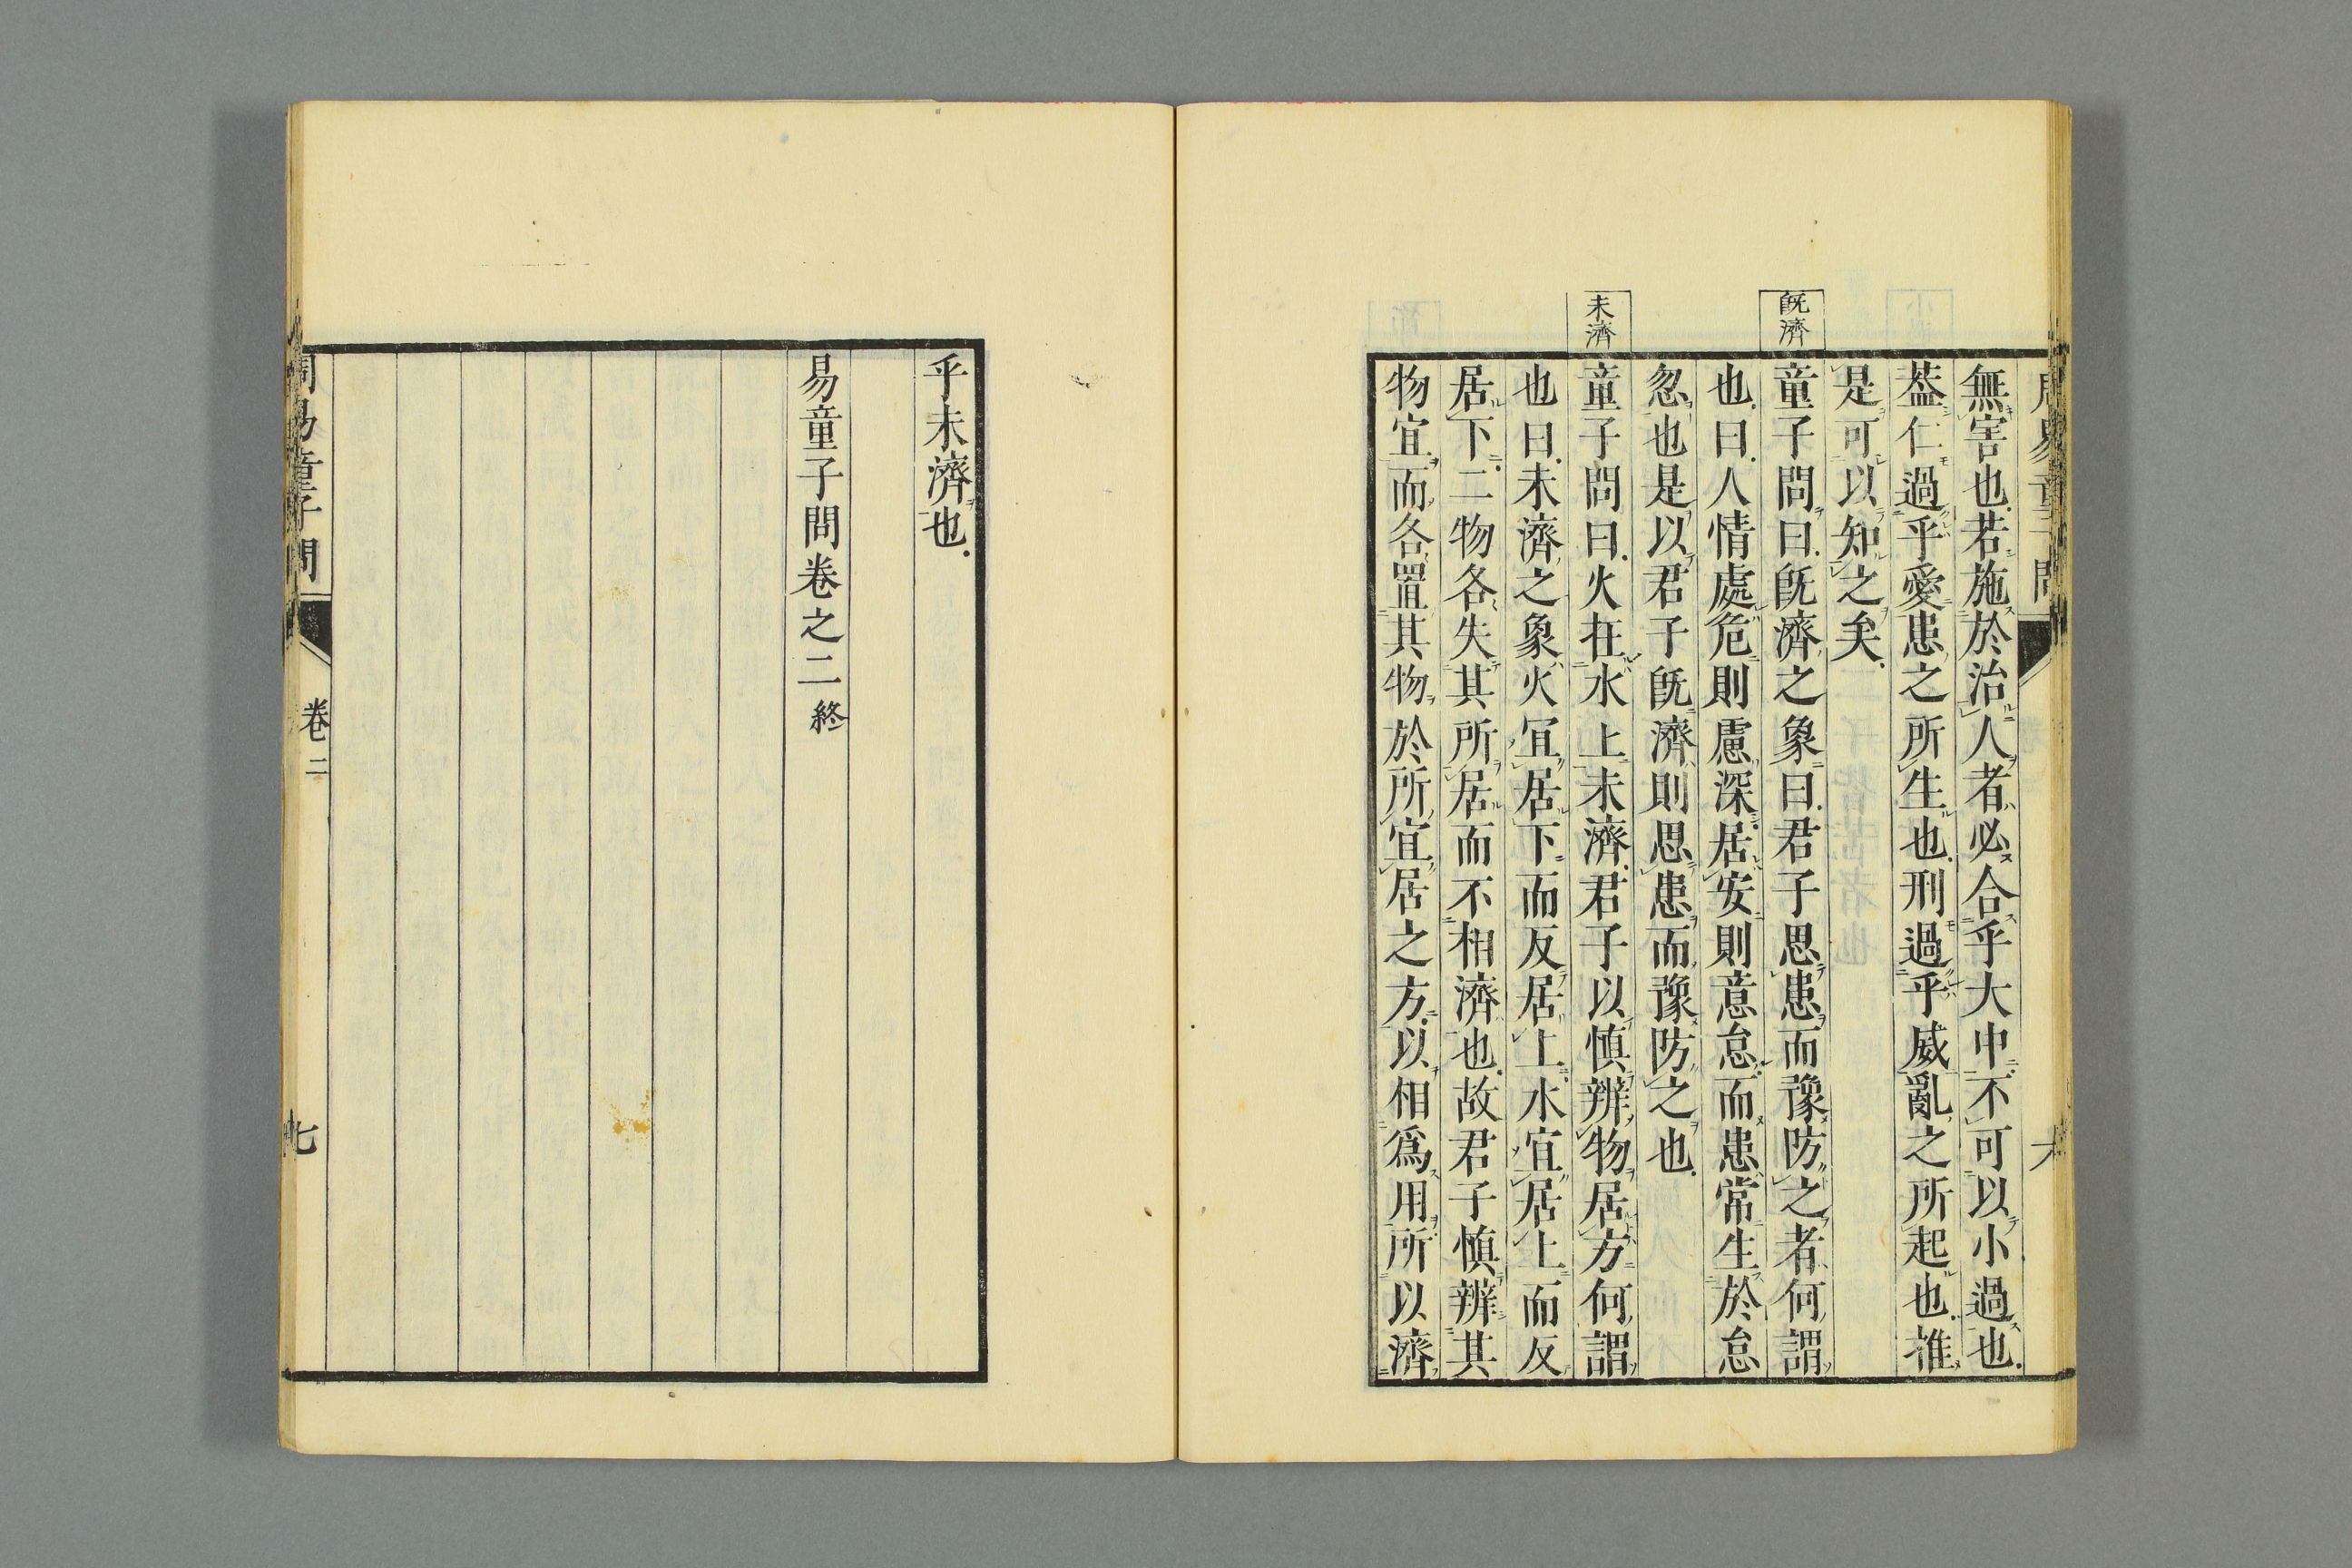 無害也若施於治人者必合乎大中不可以小過也
葢仁過乎愛患之所生也刑過乎威亂之所起也推
是可以知之矣
旣濟
童子問曰旣濟之象曰君子思患而豫防之者何謂
也曰人情處危則慮深居安則意怠而患常生於怠
忽也是以君子旣濟則思患而豫防之也
未濟
童子問曰火在水上未濟君子以愼辨物居方何謂
也曰未濟之象火宜居下而反居上水宜居上而反
居下二物各失其所居而不相濟也故君子愼辨其
物宜而各置其物於所宜居之方以相爲用所以濟
乎未濟也
易童子問卷之二終
周易童子問
卷二
七